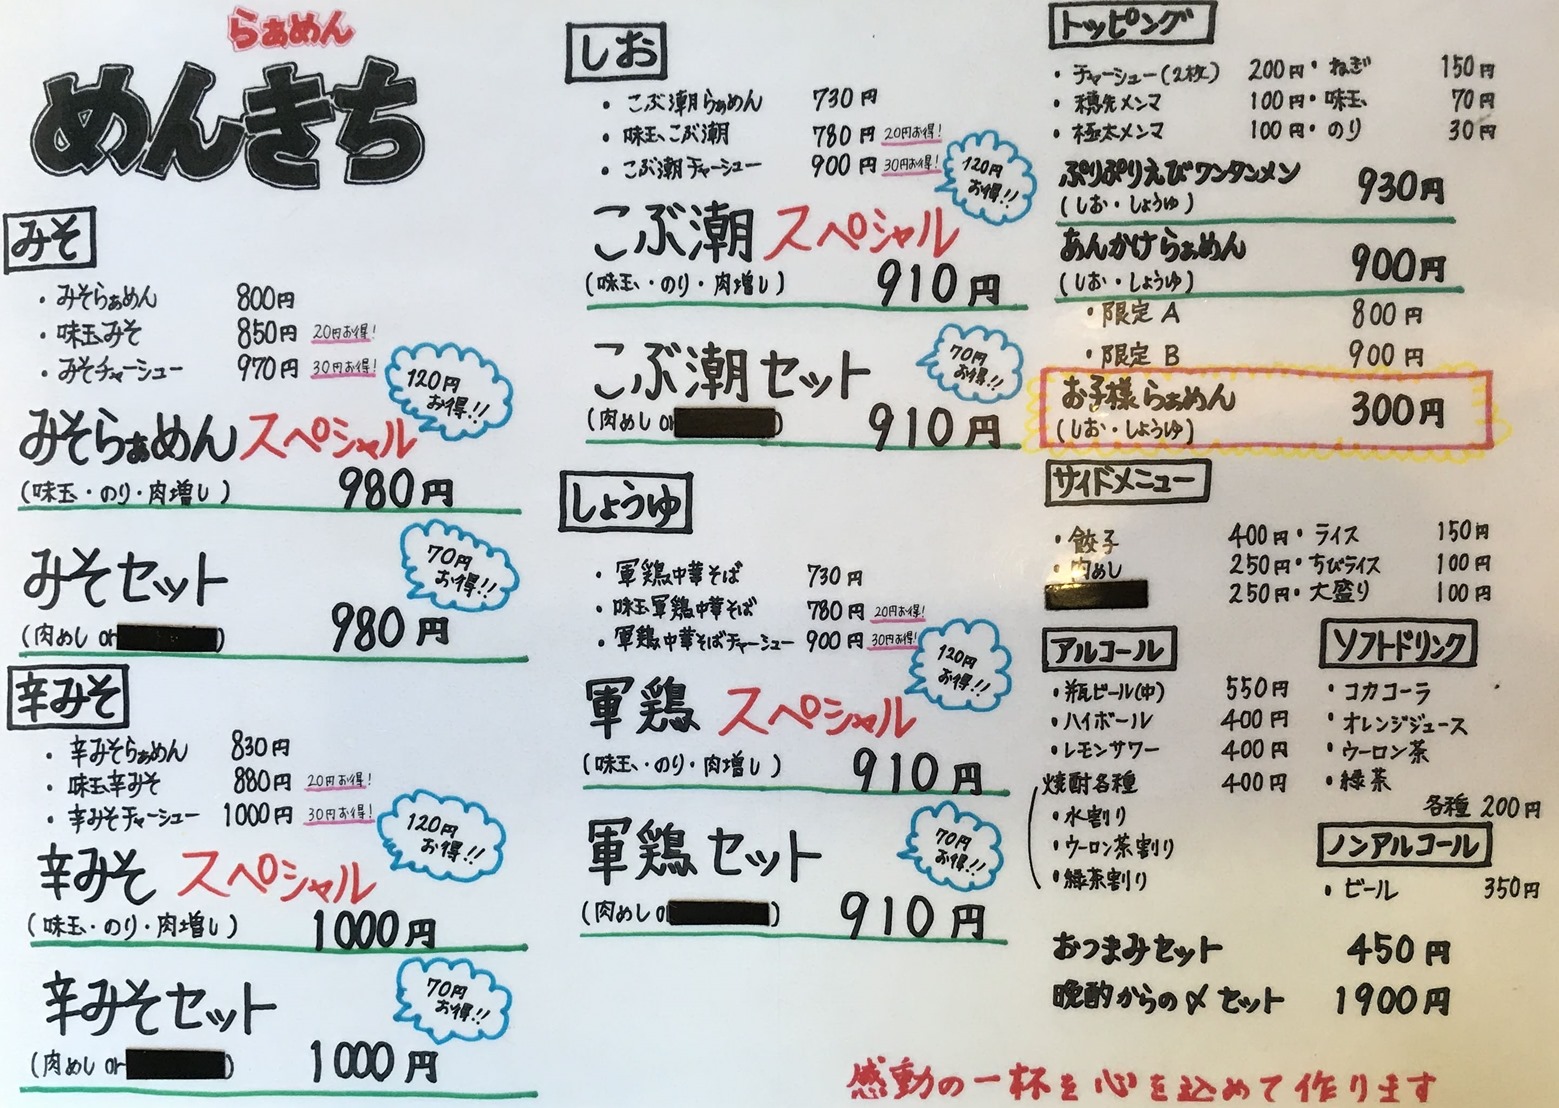 らぁめん
めんきち
みそ
・みそらぁめん 800円
・味玉みそ 850円 20円お得!
・みそチャーシュー 970円 30円お得!
120円
お得!!
みそらぁめんスペシャル
(味玉・のり・肉増し) 980円
70円
お得!!
みそセット
(肉めし or ) 980円
辛みそ
・辛みそらぁめん 830円
・味玉辛みそ 880円 20円お得!
・辛みそチャーシュー 1000円 30円お得!
120円
お得!!
辛みそ スペシャル
(味玉・のり・肉増し) 1000円
70円
お得!!
辛みそセット
(肉めし or ) 1000円
しお
・こぶ潮らぁめん 730円
・味玉こぶ潮 780円 20円お得!
・こぶ潮チャーシュー 900円 30円お得!
120円
お得!!
こぶ潮スペシャル
(味玉・のり・肉増し) 910円
70円
お得!!
こぶ潮セット
(肉めし or ) 910円
しょうゆ
・軍鶏中華そば 730円
・味玉軍鶏中華そば 780円 20円お得!
・軍鶏中華そばチャーシュー 900円 30円お得!
120円
お得!!
軍鶏 スペシャル
(味玉・のり・肉増し) 910円
70円
お得!!
軍鶏セット
(肉めし o ) 910円
トッピング
・チャーシュー(2枚) 200円・ねぎ 150円
・穂先メンマ 100円・味玉 70円
・極太メンマ 100円・のり 30円
ぷりぷりえびワンタンメン 930円
(しお・しょうゆ)
あんかけらぁめん 900円
(しお・しょうゆ)
・限定 A 800円
・限定 B 900円
お子様らぁめん 300円
(しお・しょうゆ)
サイドメニュー
・餃子 400円・ライス 150円
・肉めし 250円・ちびライス 100円
250円・大盛り 100円
アルコール
・瓶ビール(中) 550円
・ハイボール 400円
・レモンサワー 400円
焼酎各種 400円
・水割り
・ウーロン茶割り
・緑茶割り
ソフトドリンク
・コカコーラ
・オレンジジュース
・ウーロン茶
・緑茶
各種 200円
ノンアルコール
・ビール 350円
おつまみセット 450円
晩酌からの〆セット 1900円
感動の一杯を心を込めて作ります